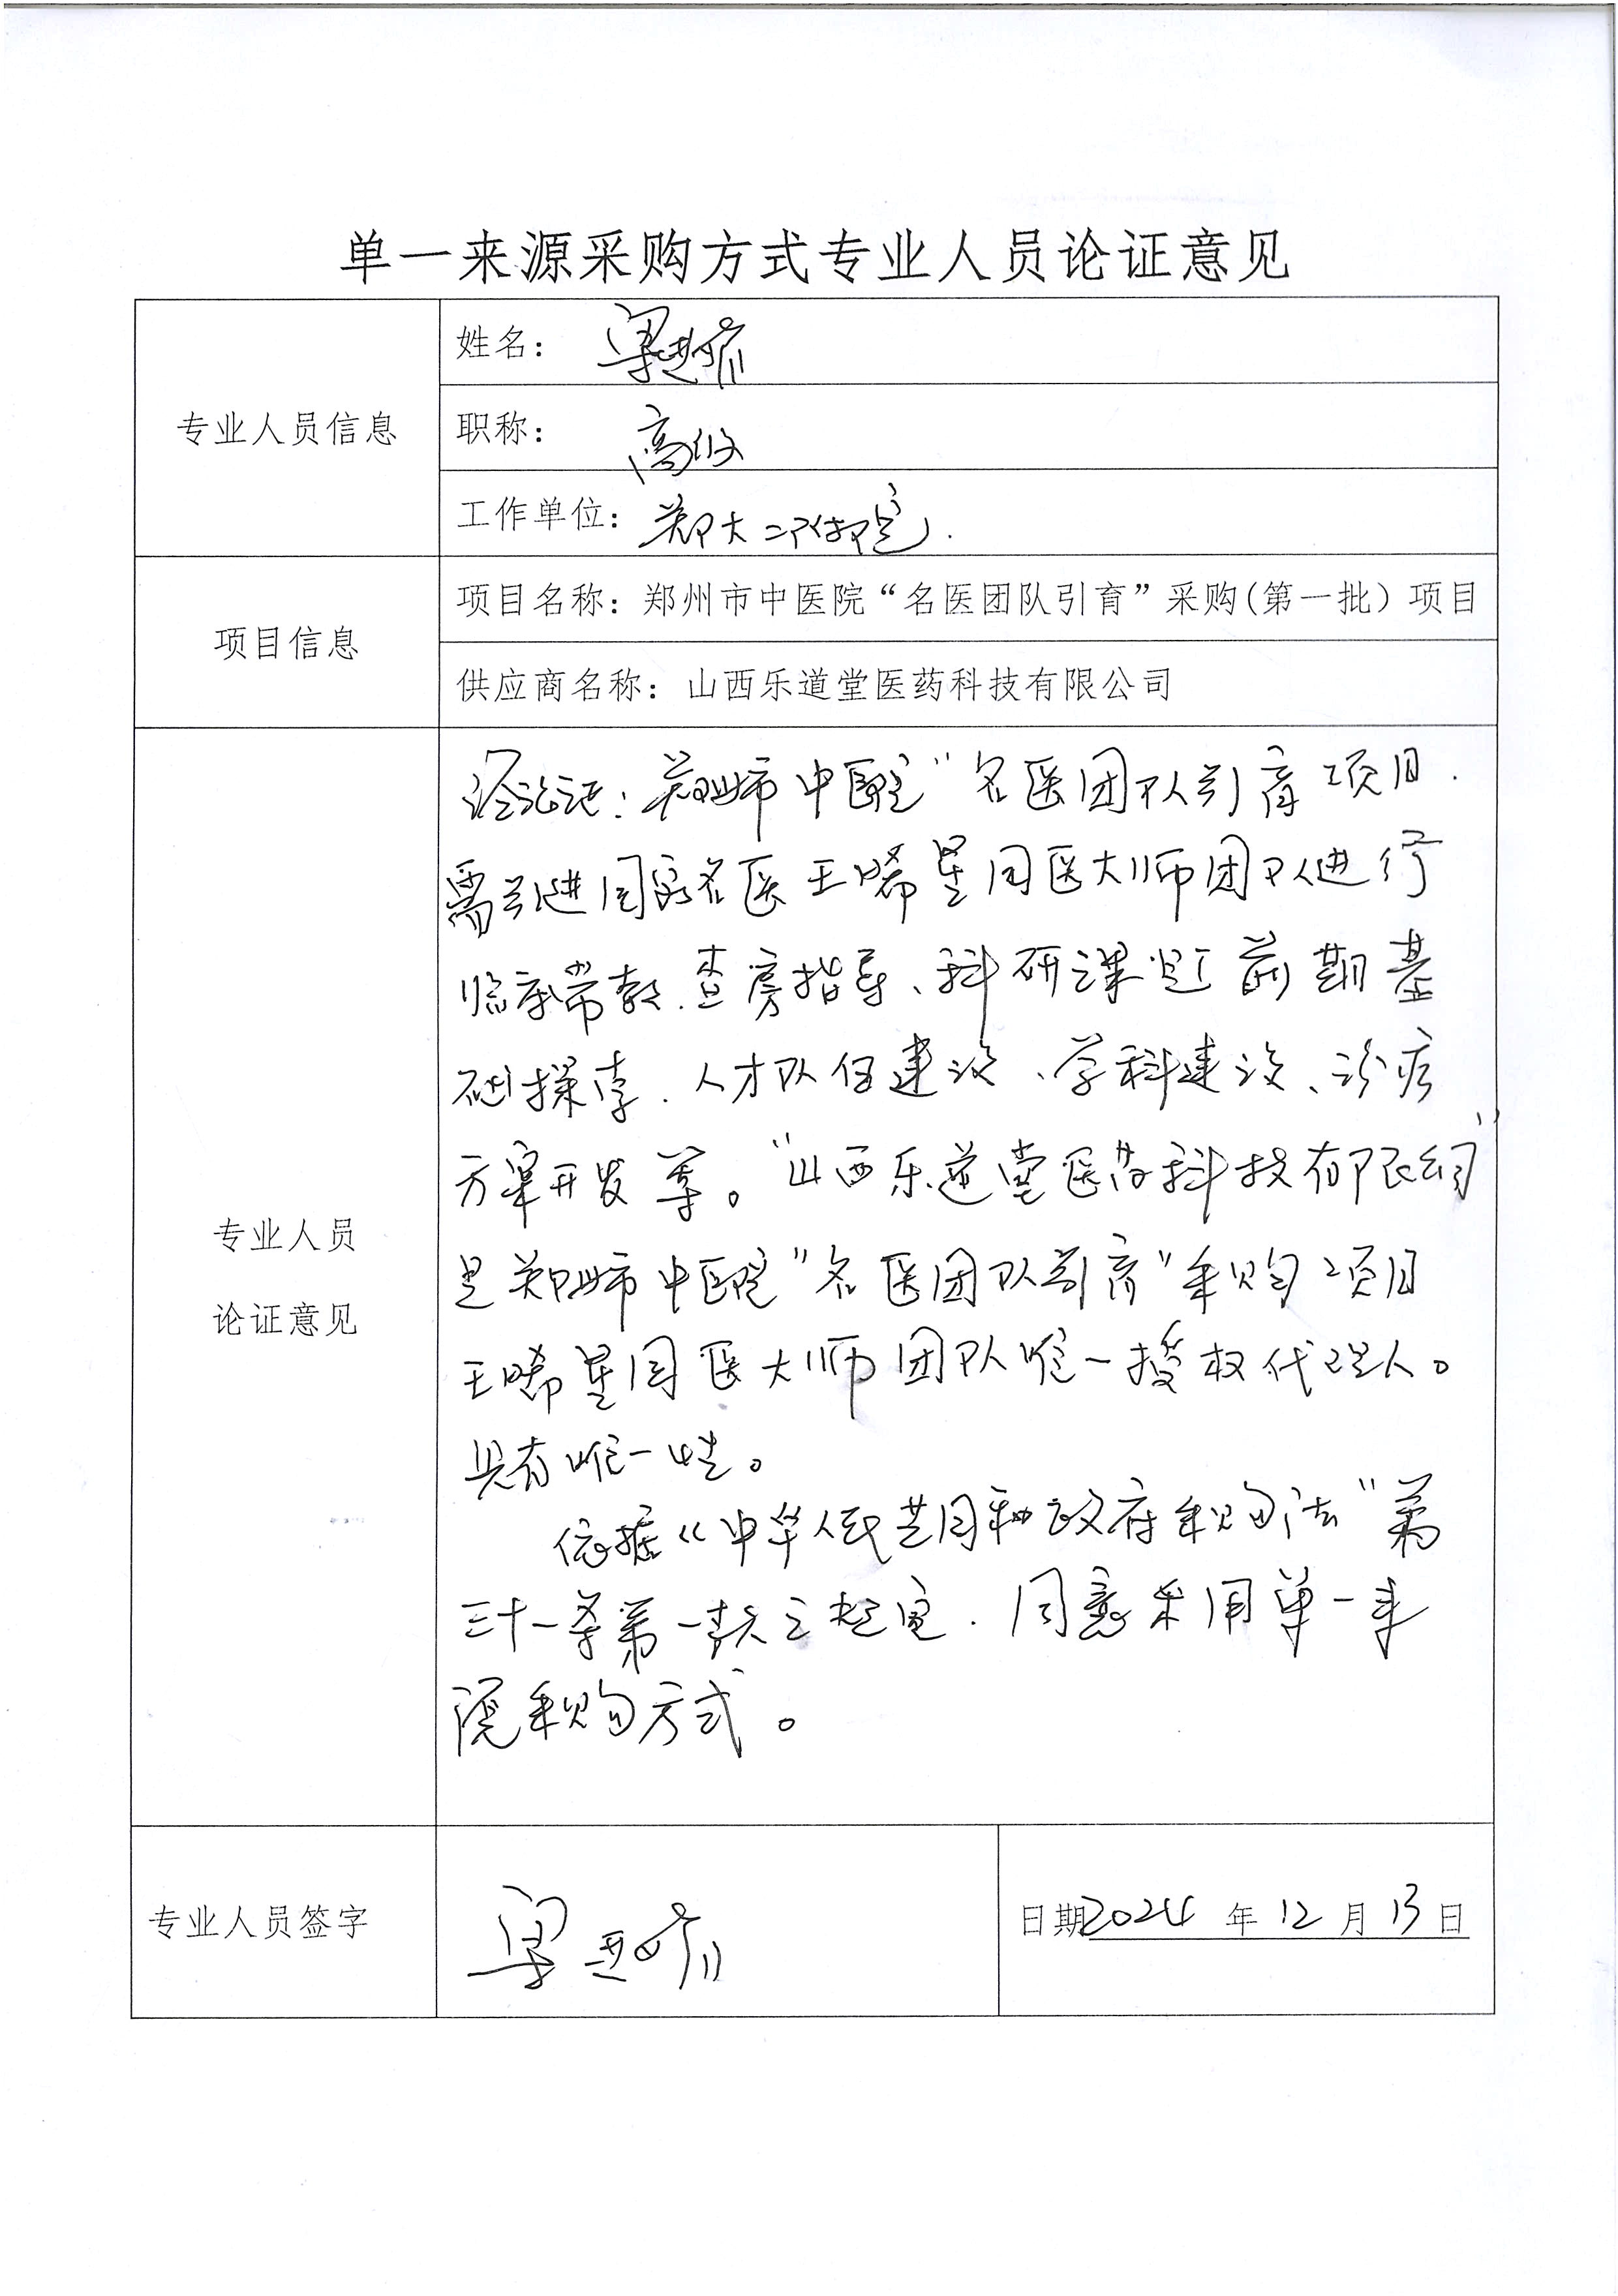 单一来源采购方式专业人员论证意见
专业人员信息
姓名：梁
职称：高级
工作单位：郑大二附院.
项目信息
项目名称：郑州市中医院“名医团队引育”采购(第一批）项目
供应商名称：山西乐道堂医药科技有限公司
专业人员
论证意见
经论证：郑州市中医院“名医团队引育项目.
需引进国家名医王晞星国医大师团队进行
临床带教.查房指导、科研课题前期基
础探索.人才队伍建设、学科建设、诊疗
方案开发等。“山西乐道堂医药科技有限公司”
是郑州市中医院“名医团队引育”采购项目
王晞星国医大师团队唯一授权代理人。
具有唯一性。
依据《中华人民共国和政府采购法”第
三十一条第一款之规定.同意采用单一来
源采购方式。
专业人员签字
梁
日期2024年12月13日